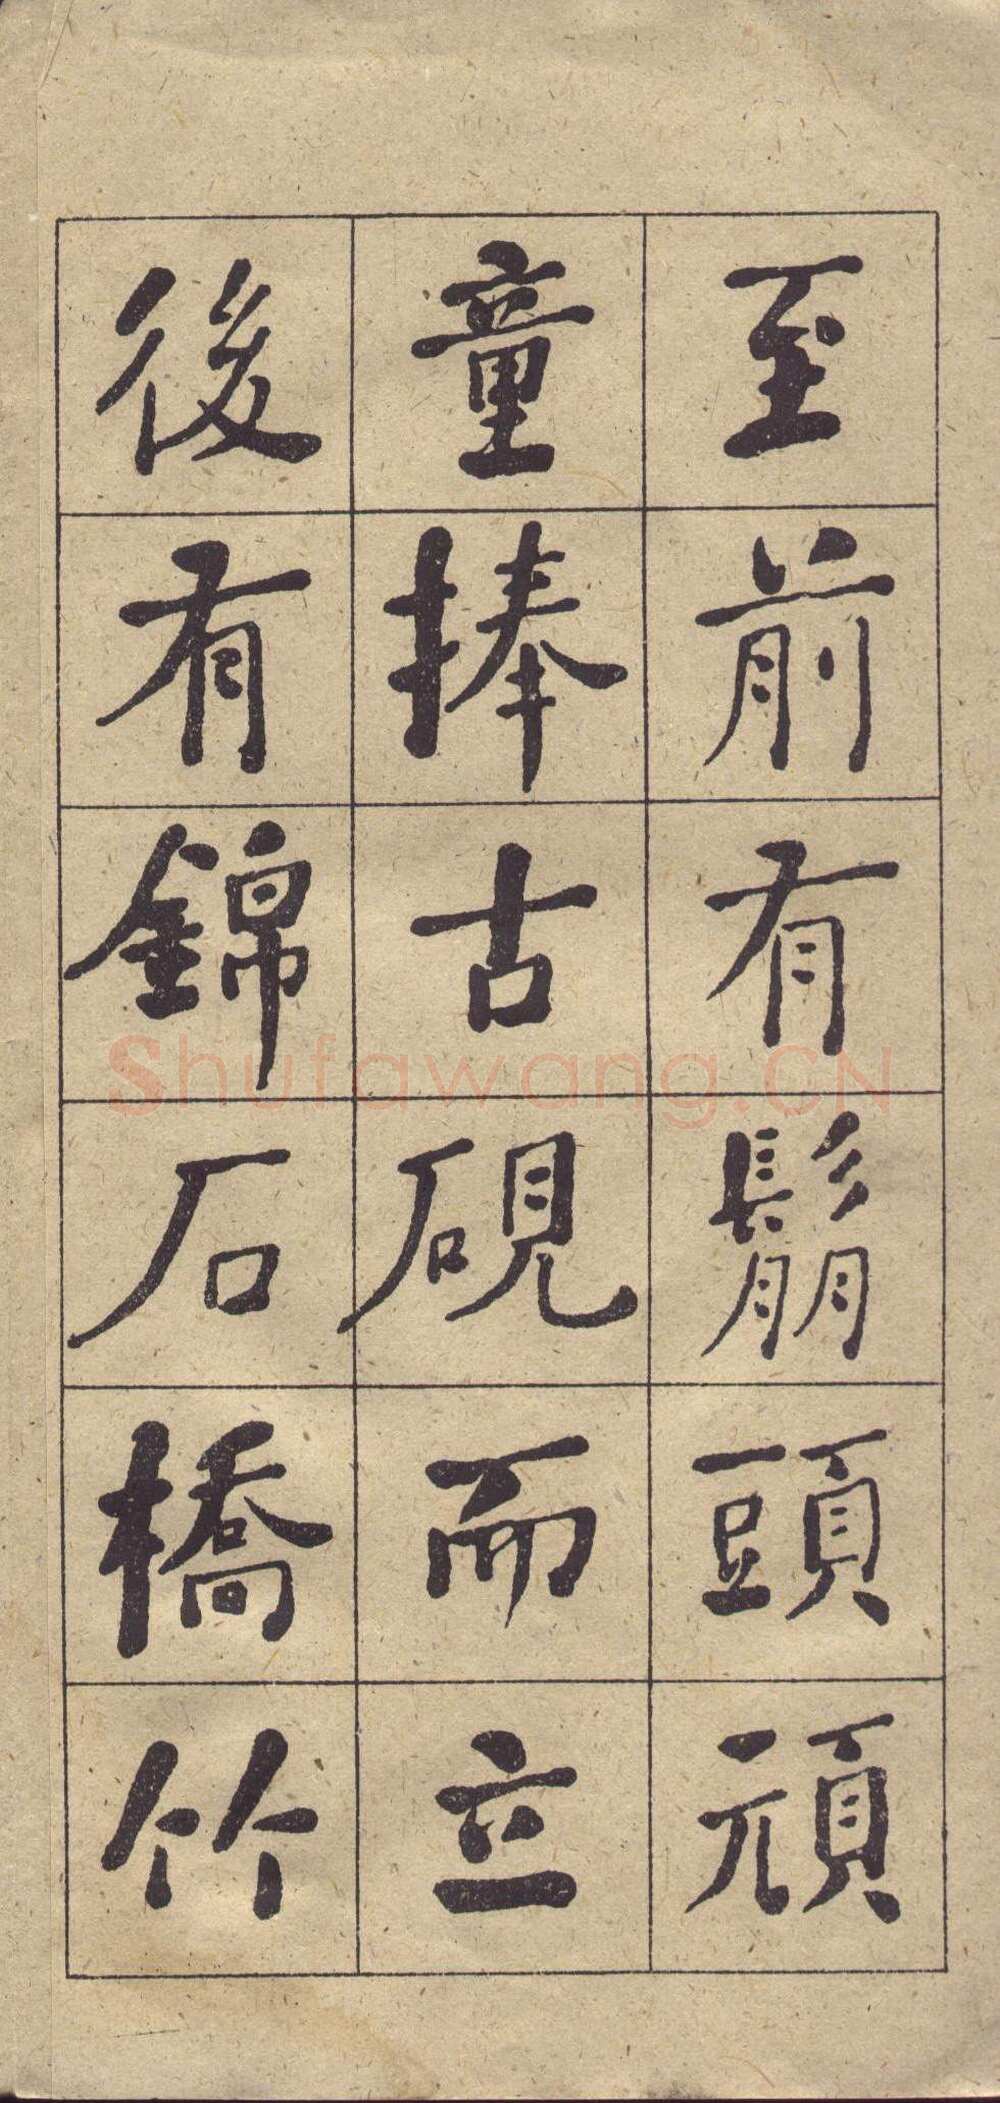 至前有鬅頭頑
童捧古硯而立
後有錦石橋竹
Shufawang.CN